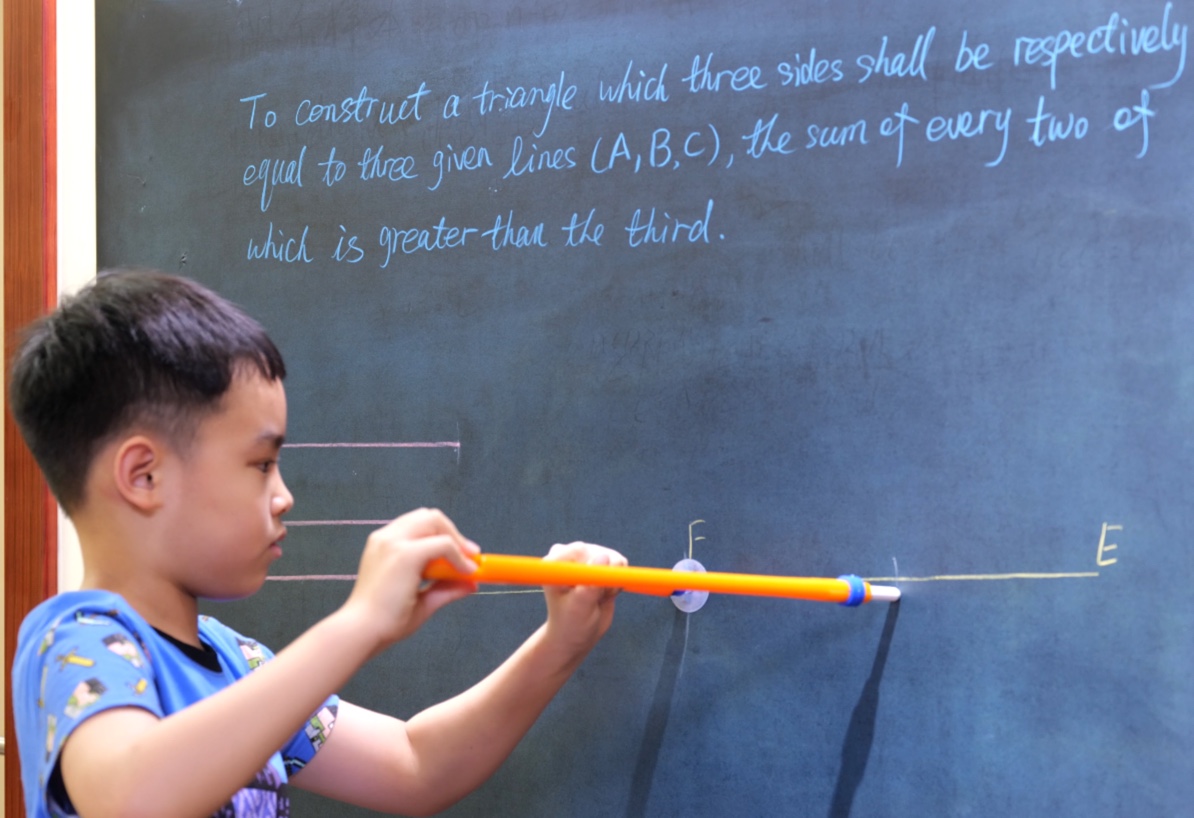 To construct a triangle which three sides shall be respectively
equal to three given lines (A,B,C), the sum of every two of
which is greater than the third.
F
E